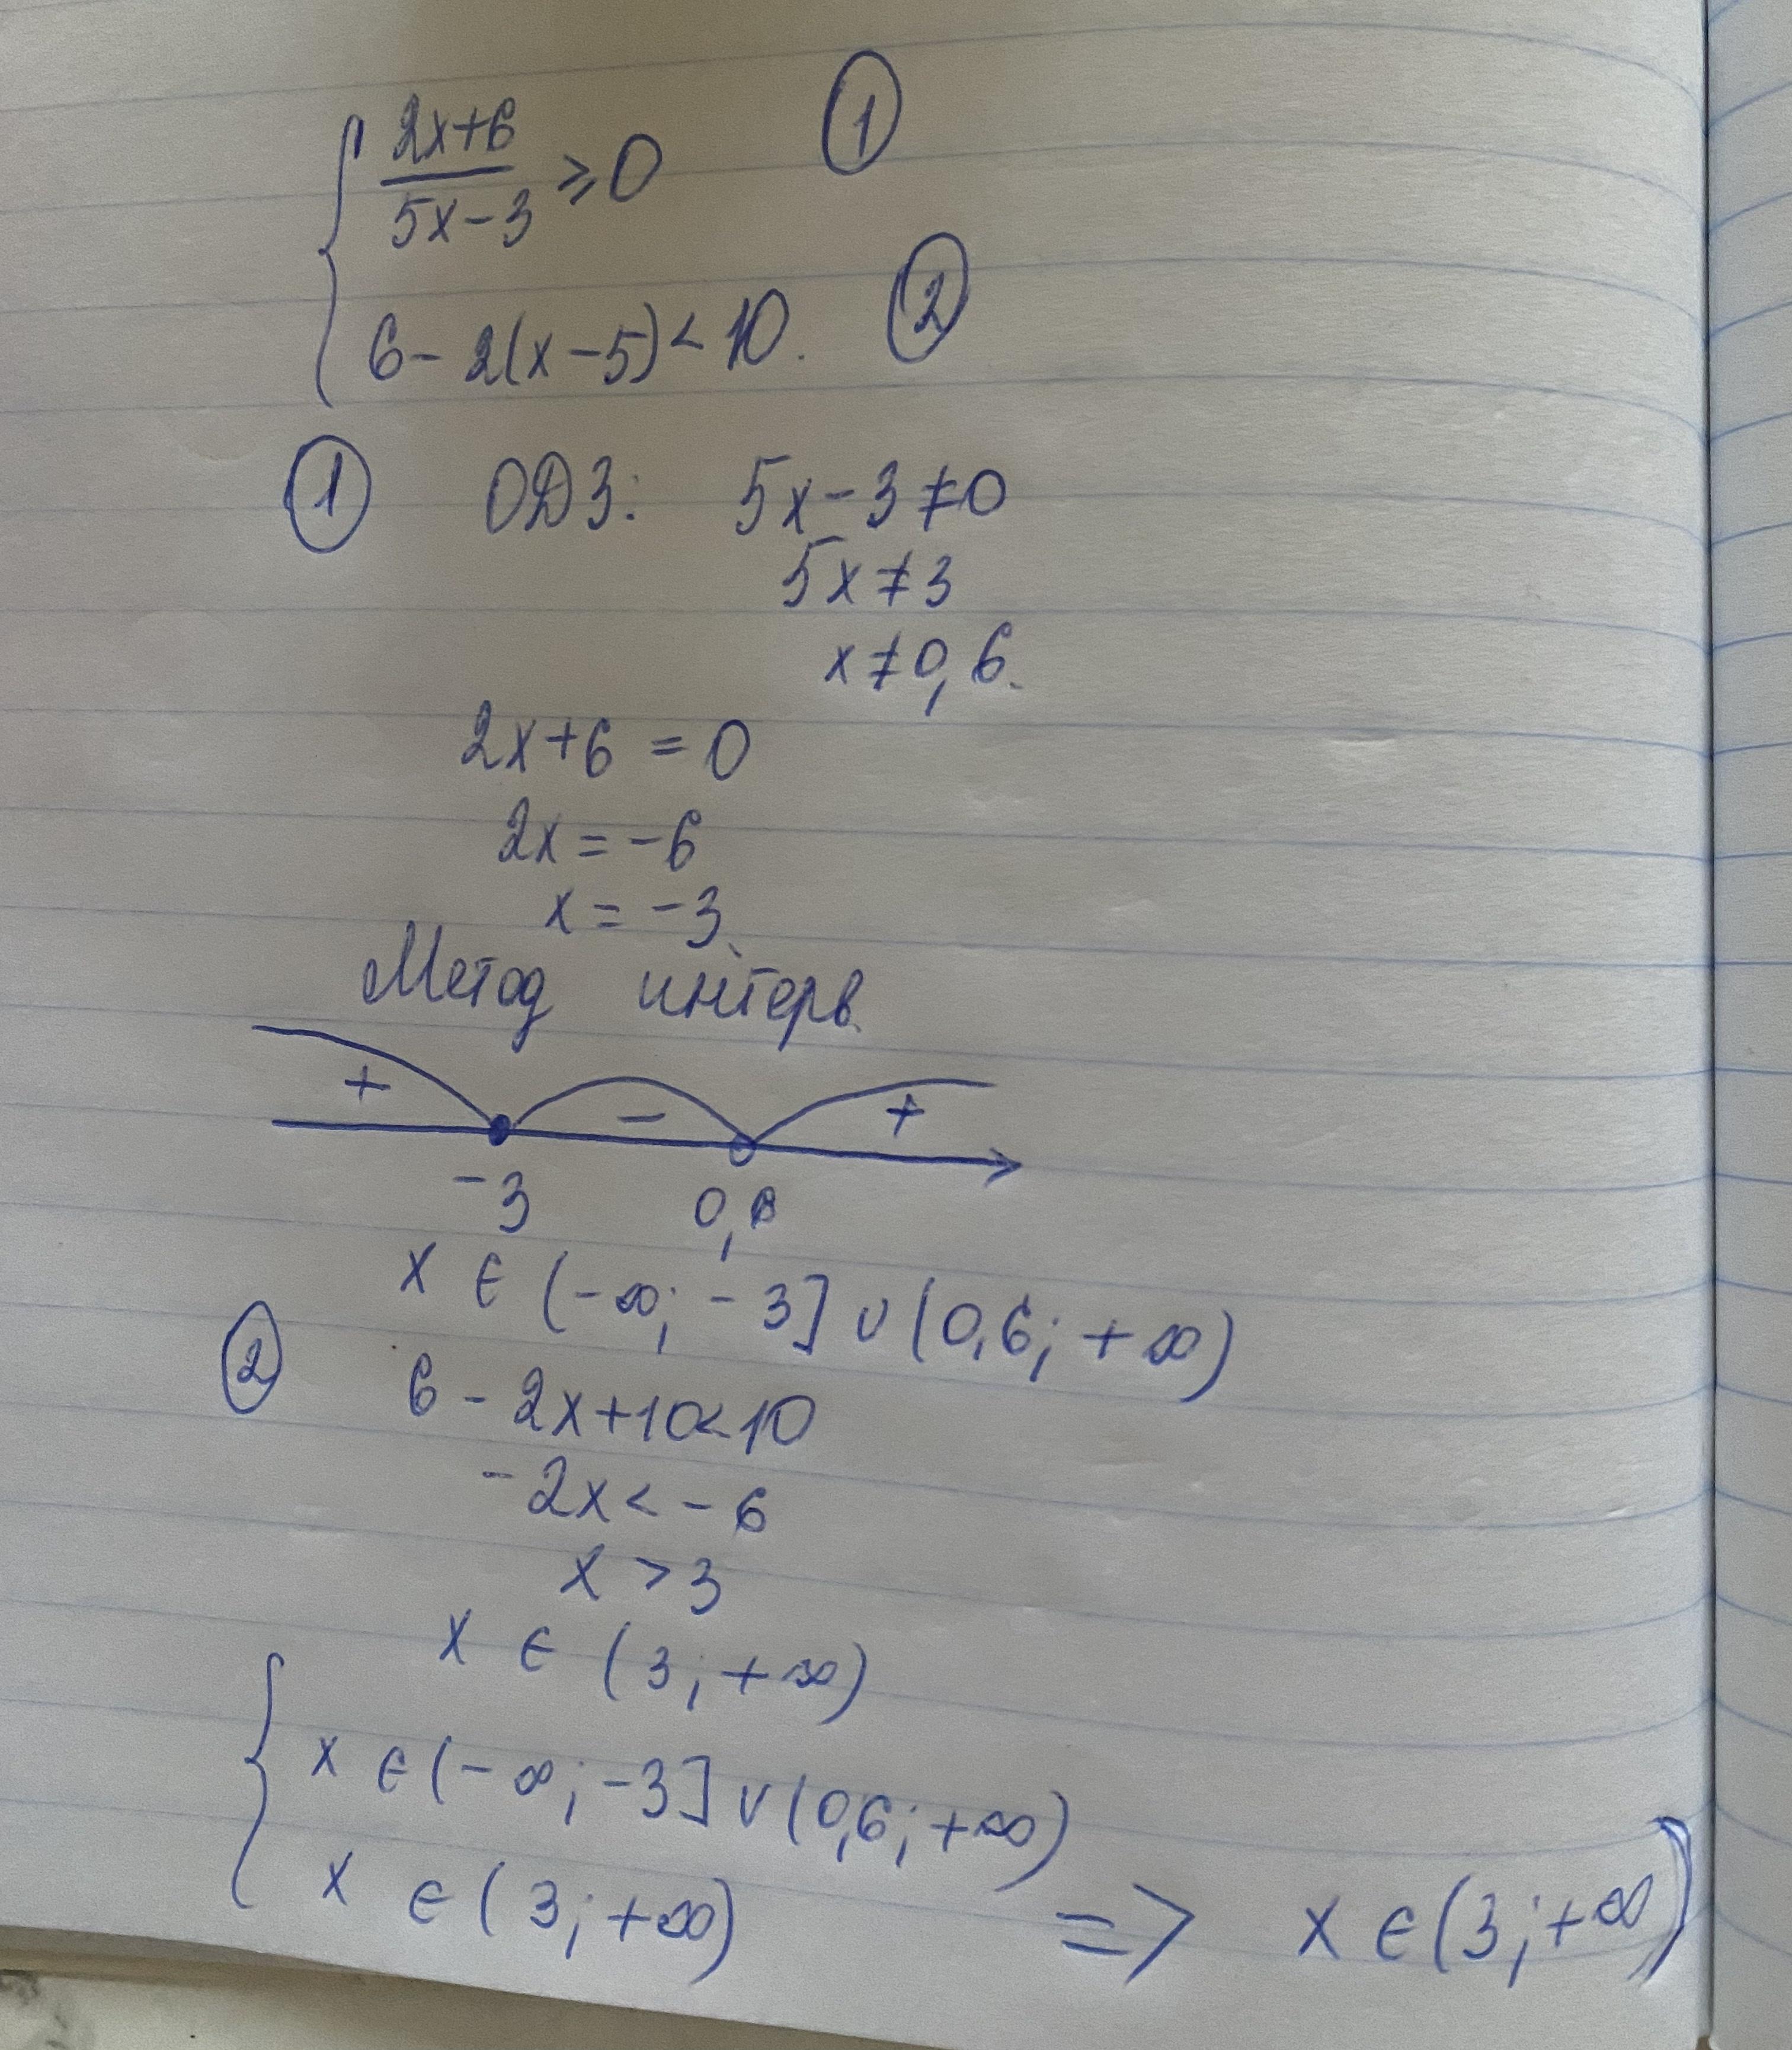 { (2x+6)/(5x-3) ⩾ 0 ①
6 - 2(x-5) < 10. ②
① ОДЗ: 5x-3≠0
5x≠3
x≠0,6.
2x+6 = 0
2x = -6
x = -3.
Метод интерв.
+ - +
-3 0,6
x ∈ (-∞; -3] ∪ (0,6; +∞)
② 6 - 2x+10<10
-2x < -6
x > 3
x ∈ (3; +∞)
{ x ∈ (-∞; -3] ∪ (0,6; +∞)
x ∈ (3; +∞) => x ∈ (3; +∞)